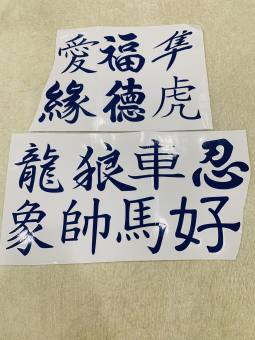 愛福隼
緣德虎
龍狼車忍
象帥馬好